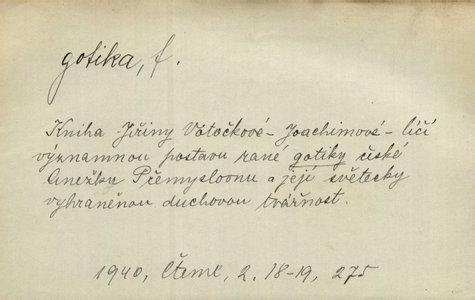 gotika, f.
Kniha Jiřiny Vótočkové-Joachimové - líčí
významnou postavu rané gotiky české
Anežku Přemyslovnu a její světecky
vyhraněnou duchovou tvářnost.
1940, Čteme, 2. 18-19, 275